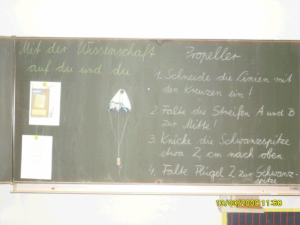 Mit der Wissenschaft
auf du und du
Propeller
1. Schneide die Linien mit
den Kreuzen ein!
2. Falte die Streifen A und B
zur Mitte!
3. Knicke die Schwanzspitze
etwa 2 cm nach oben
4. Falte Flügel 2 zur Schwanz-
spitze